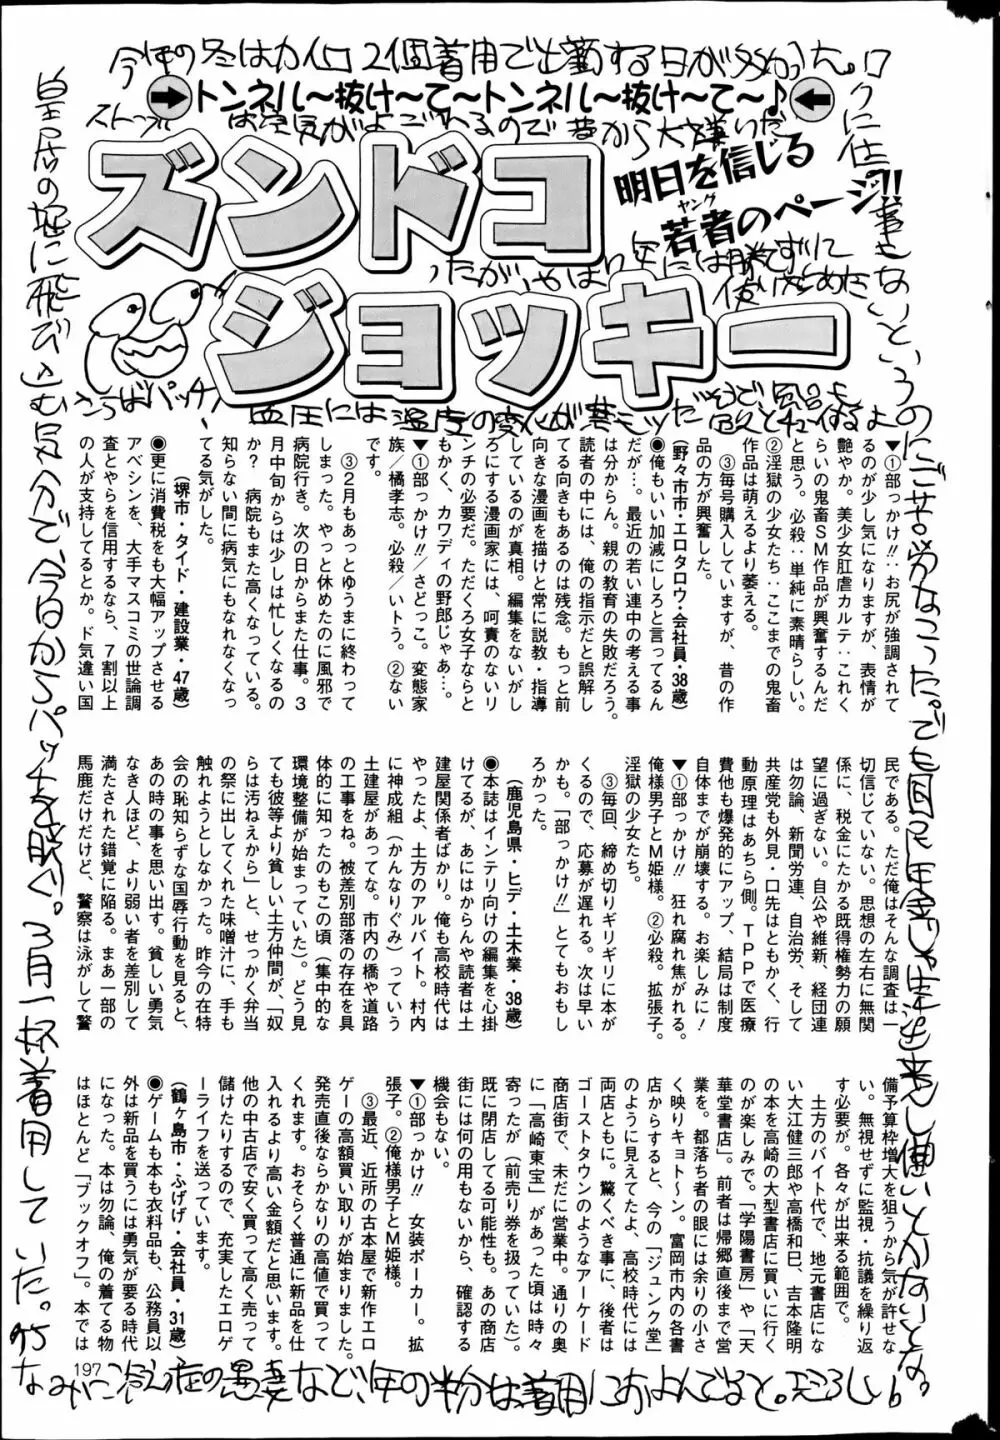 トンネル～抜け～て～トンネル～抜け～て～♪
ズンドコ
ジョッキー
明日を信じる
若者のページ!!
ヤング
▼①部っかけ!!‥お尻が強調されて
るのが少し気になりますが、表情が
艶やか。美少女肛虐カルテ‥これく
らいの鬼畜SM作品が興奮するんだ
と思う。必殺‥単純に素晴らしい。
②淫獄の少女たち‥ここまでの鬼畜
作品は萌えるより萎える。
③毎号購入していますが、昔の作
品の方が興奮した。
(野々市市・エロタロウ・会社員・38歳)
●俺もいい加減にしろと言ってるん
だが…。最近の若い連中の考える事
は分からん。親の教育の失敗だろう。
読者の中には、俺の指示だと誤解し
てる向きもあるのは残念。もっと前
向きな漫画を描けと常に説教・指導
しているのが真相。編集をないがし
ろにする漫画家には、呵責のないリ
ンチの必要だ。ただくろ女子ならと
もかく、カワディの野郎じゃあ…。
▼①部っかけ!!／さどっこ。変態家
族／橘孝志。必殺／いトう。②ない
です。
③2月もあっとゆうまに終わって
しまった。やっと休めたのに風邪で
病院行き。次の日からまた仕事。3
月中旬からは少しは忙しくなるの
か?　病院もまた高くなっている。
知らない間に病気にもなれなくなっ
てる気がした。
(堺市・タイド・建設業・47歳)
●更に消費税をも大幅アップさせる
アベシンを、大手マスコミの世論調
査とやらを信用するなら、7割以上
の人が支持してるとか。ド気違い国
民である。ただ俺はそんな調査は一
切信じていない。思想の左右に無関
係に、税金にたかる既得権勢力の願
望に過ぎない。自公や維新、経団連
は勿論、新聞労連、自治労、そして
共産党も外見・口先はともかく、行
動原理はあちら側。TPPで医療
費他も爆発的にアップ、結局は制度
自体までが崩壊する。お楽しみに!
▼①部っかけ!!　狂れ腐れ焦がれる。
俺様男子とM姫様。②必殺。拡張子。
淫獄の少女たち。
③毎回、締め切りギリギリに本が
くるので、応募が遅れる。次は早い
かも。「部っかけ!!」とてもおもし
ろかった。
(鹿児島県・ヒデ・土木業・38歳)
●本誌はインテリ向けの編集を心掛
けてるが、あにはからんや読者は土
建屋関係者ばかり。俺も高校時代は
やったよ、土方のアルバイト。村内
に神成組(かんなりぐみ)っていう
土建屋があってな。市内の橋や道路
の工事をね。被差別部落の存在を具
体的に知ったのもこの頃(集中的な
環境整備が始まっていた)。どう見
ても彼等より貧しい土方仲間が、「奴
らは汚ねえから」と、せっかく弁当
の祭に出してくれた味噌汁に、手も
触れようとしなかった。昨今の在特
会の恥知らずな国辱行動を見ると、
あの時の事を思い出す。貧しい勇気
なき人ほど、より弱い者を差別して
満たされた錯覚に陥る。まあ一部の
馬鹿だけだけど、警察は泳がして警
備予算枠増大を狙うから気が許せな
い。無視せずに監視・抗議を繰り返
す必要が。各々が出来る範囲で。
土方のバイト代で、地元書店にな
い大江健三郎や高橋和巳、吉本隆明
の本を高崎の大型書店に買いに行く
のが楽しみで。「学陽書房」や「天
華堂書店」。前者は帰郷直後まで営
業を。都落ち者の眼には余りの小さ
く映りキョト～ン。富岡市内の各書
店からすると、今の「ジュンク堂」
のように見えてたよ、高校時代には
両店ともに。驚くべき事に、後者は
ゴーストタウンのようなアーケード
商店街で、未だに営業中。通りの奥
に「高崎東宝」があった頃は時々
寄ったが(前売り券を扱っていた)。
既に閉店してる可能性も。あの商店
街には何の用もないから、確認する
機会もない。
▼①部っかけ!!　女装ポーカー。拡
張子。②俺様男子とM姫様。
③最近、近所の古本屋で新作エロ
ゲーの高額買い取りが始まりました。
発売直後ならかなりの高値で買って
くれます。おそらく普通に新品を仕
入れるより高い金額だと思います。
他の中古店で安く買って高く売って
儲けたりするので、充実したエロゲ
ーライフを送っています。
(鶴ヶ島市・ふげげ・会社員・31歳)
●ゲームも本も衣料品も、公務員以
外は新品を買うには勇気が要る時代
になった。本は勿論、俺の着てる物
はほとんど「ブックオフ」。本では
今年の冬はカイロ2個着用で出勤する日が多かった。
ストーブは空気がよごれるので昔から大嫌いだ
ったが、やはり年には勝てずに
使い始めた
皇居の堀に飛び込む気分で、今日からパッチを脱ぐ。3月一杯着用していた。
197